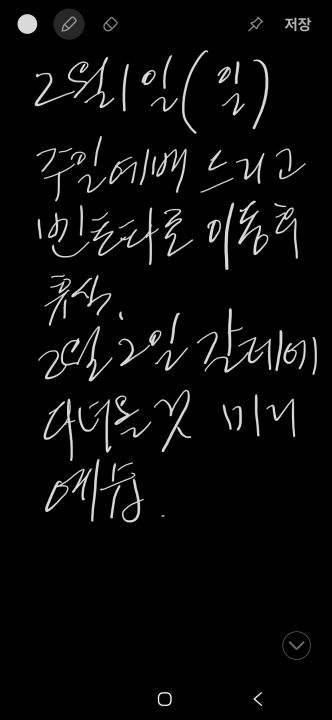 저장
2월1일(일)
주일예배 드리고
빈탄타로 이동후
휴식.
2월2일 갈데에
다녀올것 미리
예습.